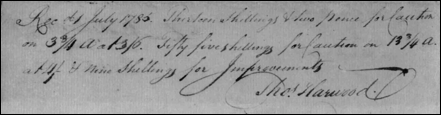 Rec'd 4 July 1785. Thirteen Shillings & two pence for Caution
on 3 3/4 a at 3/6. Fifty five shillings for Caution on 13 3/4 a.
at 4/ & nine Shillings for Improvements
Thos. Harwood.